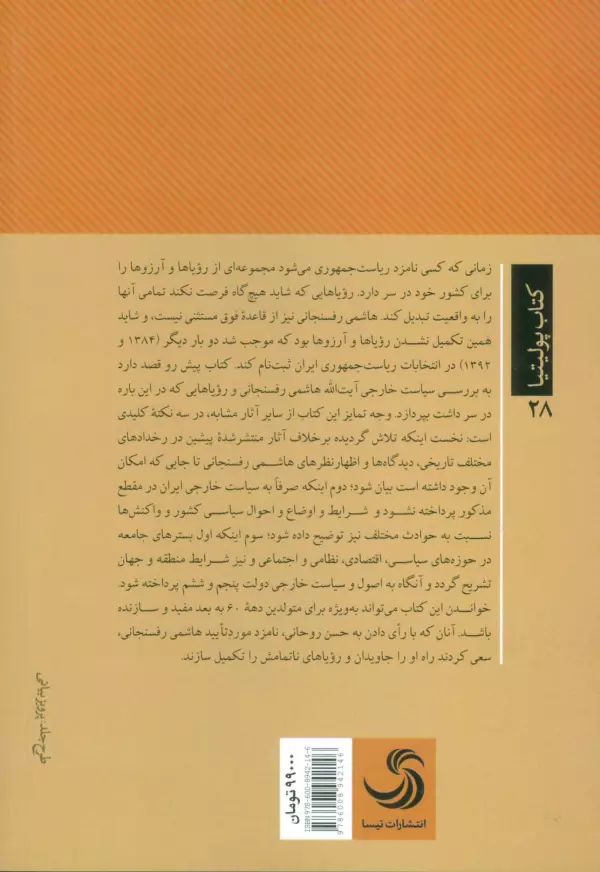 کتاب پولیتیا
۲۸
زمانی که کسی نامزد ریاست‌جمهوری می‌شود مجموعه‌ای از رؤیاها و آرزوها را
برای کشور خود در سر دارد. رؤیاهایی که شاید هیچ‌گاه فرصت نکند تمامی آنها
را به واقعیت تبدیل کند. هاشمی رفسنجانی نیز از قاعدهٔ فوق مستثنی نیست، و شاید
همین تکمیل نشدن رؤیاها و آرزوها بود که موجب شد دو بار دیگر (۱۳۸۴ و
۱۳۹۲) در انتخابات ریاست‌جمهوری ایران ثبت‌نام کند. کتاب پیش رو قصد دارد
به بررسی سیاست خارجی آیت‌الله هاشمی رفسنجانی و رؤیاهایی که در این باره
در سر داشت بپردازد. وجه تمایز این کتاب از سایر آثار مشابه، در سه نکتهٔ کلیدی
است: نخست اینکه تلاش گردیده برخلاف آثار منتشرشدهٔ پیشین در رخدادهای
مختلف تاریخی، دیدگاه‌ها و اظهارنظرهای هاشمی رفسنجانی تا جایی که امکان
آن وجود داشته است بیان شود؛ دوم اینکه صرفاً به سیاست خارجی ایران در مقطع
مذکور پرداخته نشود و شرایط و اوضاع و احوال سیاسی کشور و واکنش‌ها
نسبت به حوادث مختلف نیز توضیح داده شود؛ سوم اینکه اول بسترهای جامعه
در حوزه‌های سیاسی، اقتصادی، نظامی و اجتماعی و نیز شرایط منطقه و جهان
تشریح گردد و آنگاه به اصول و سیاست خارجی دولت پنجم و ششم پرداخته شود.
خواندن این کتاب می‌تواند به‌ویژه برای متولدین دههٔ ۶۰ به بعد مفید و سازنده
باشد. آنان که با رأی دادن به حسن روحانی، نامزد موردتأیید هاشمی رفسنجانی،
سعی کردند راه او را جاویدان و رؤیاهای ناتمامش را تکمیل سازند.
طرح جلد: پرویز بیانی
۹۹۰۰۰ تومان
ISBN 978-600-8942-14-6
9786008942146
انتشارات تیسا